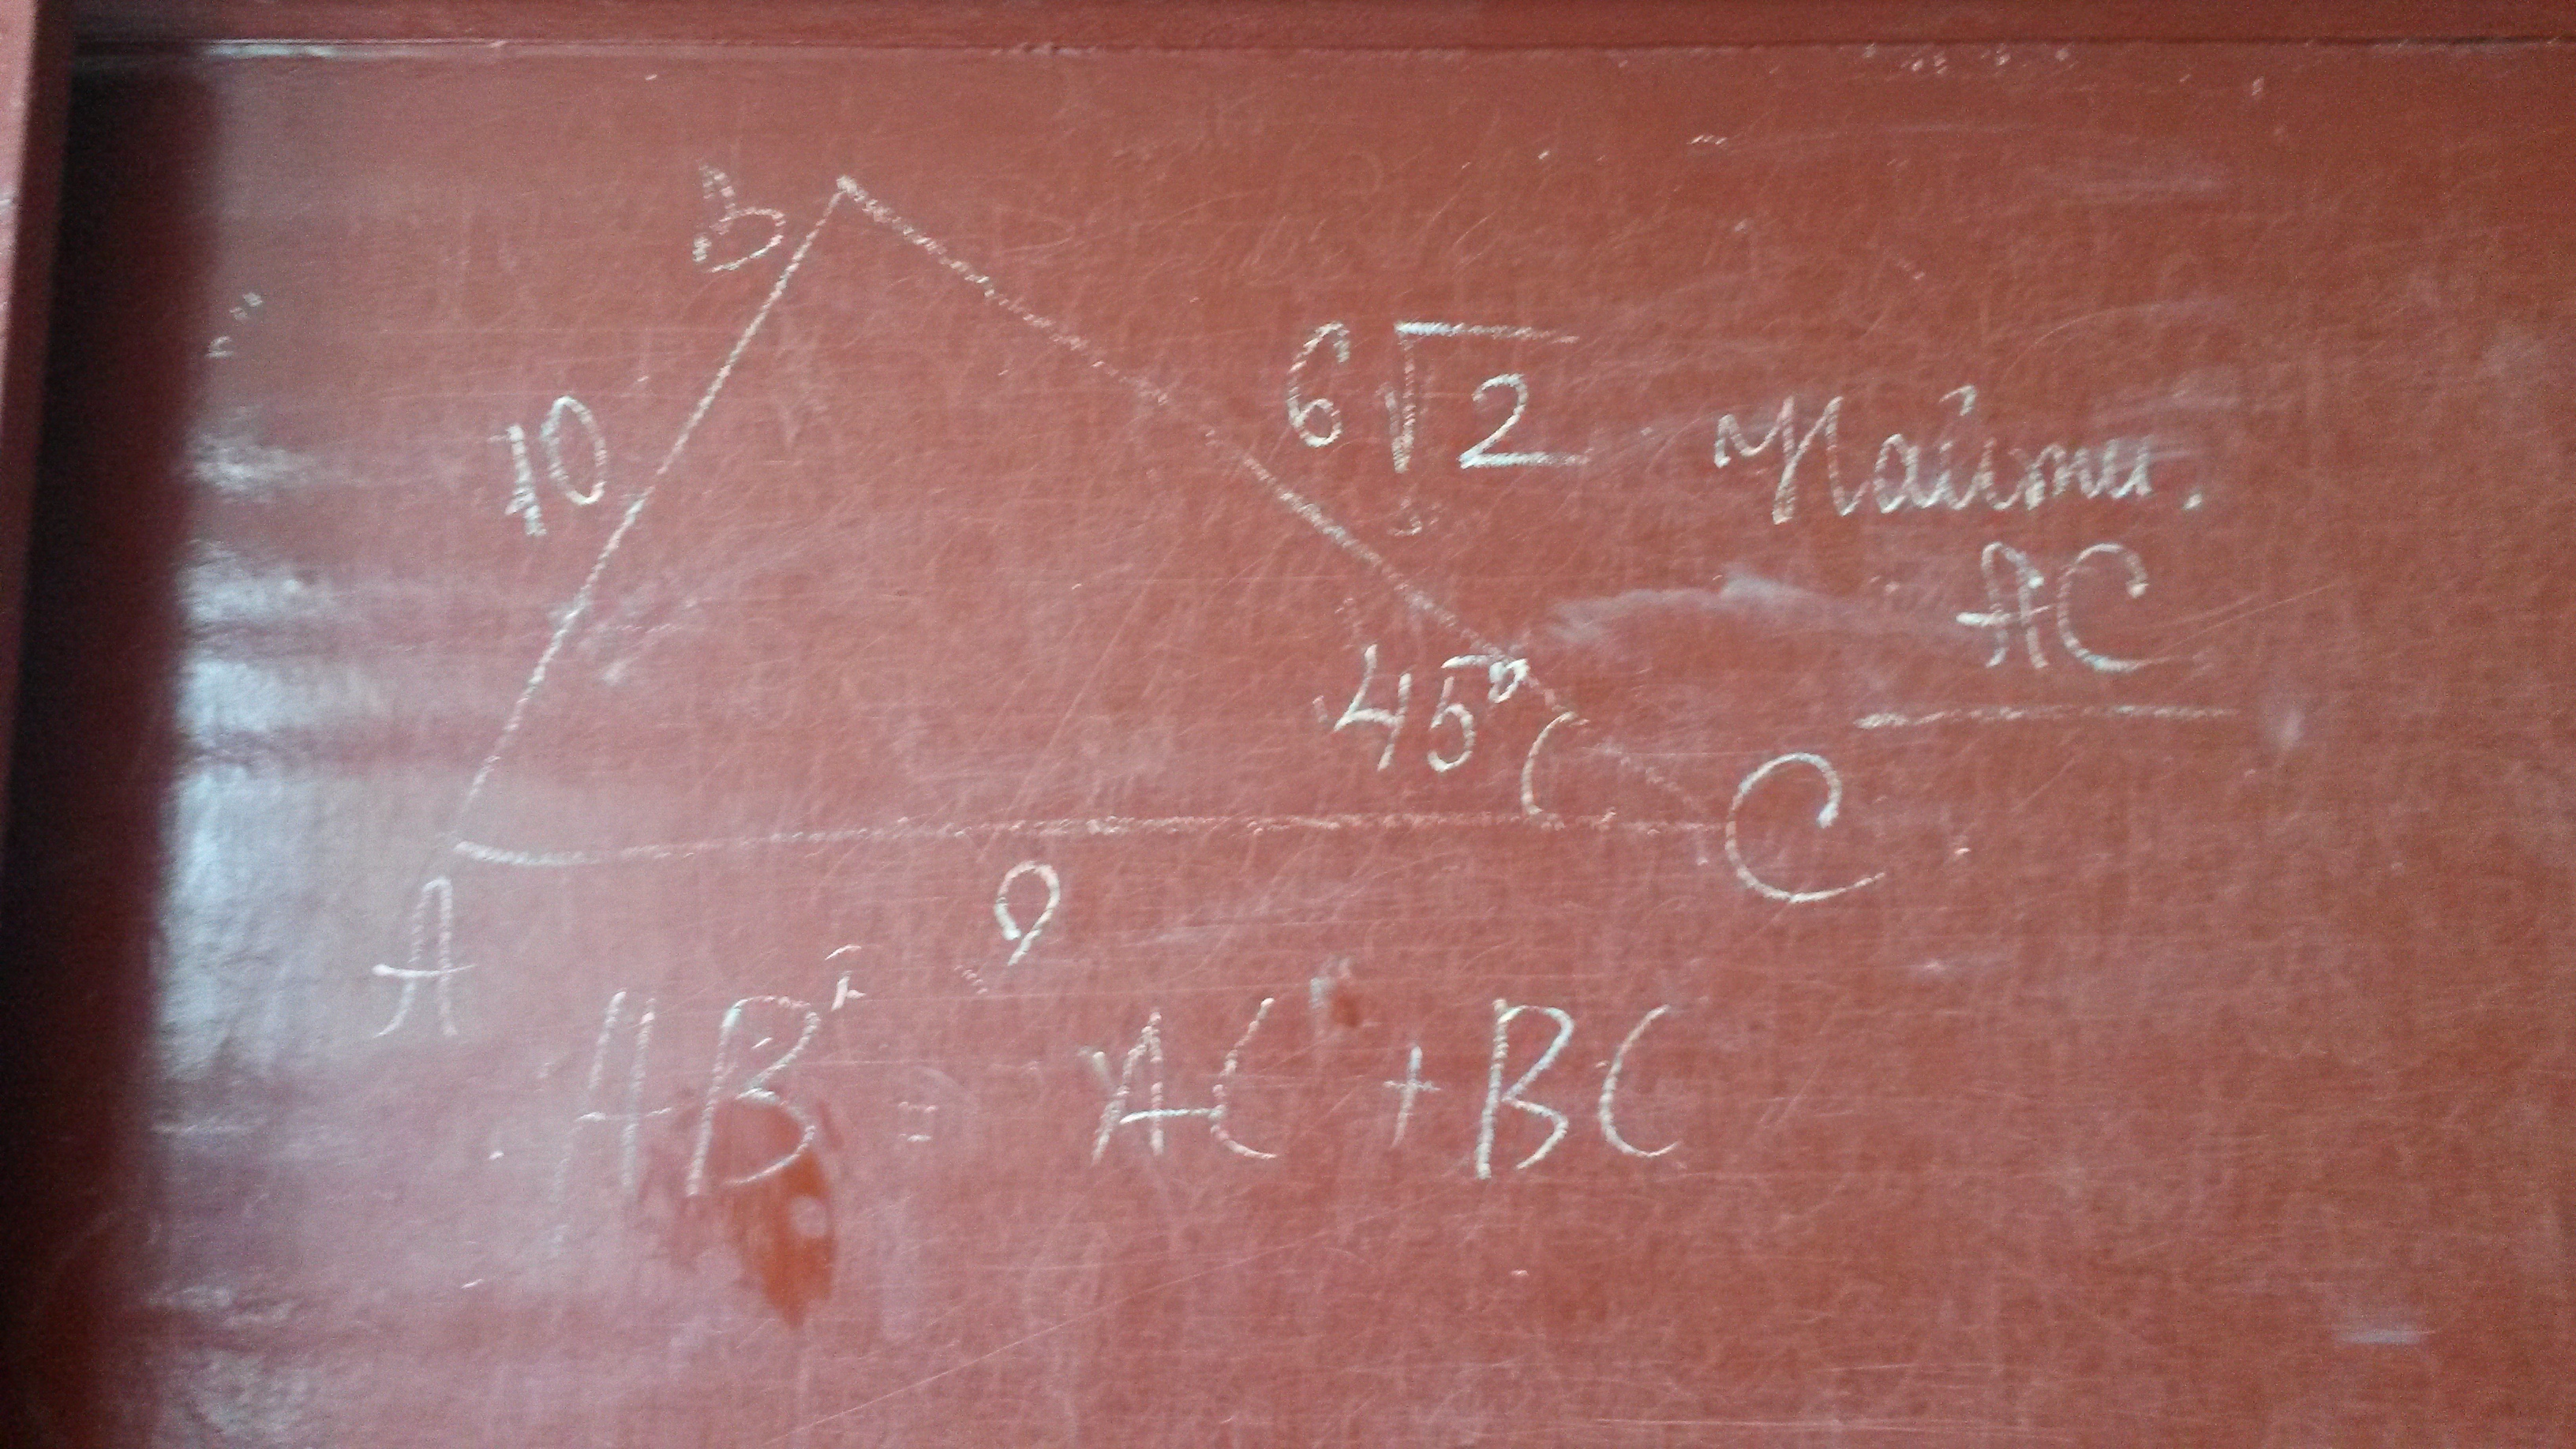 B
10
6√2
Найти:
AC
45°
C
?
A
AB² = AC + BC